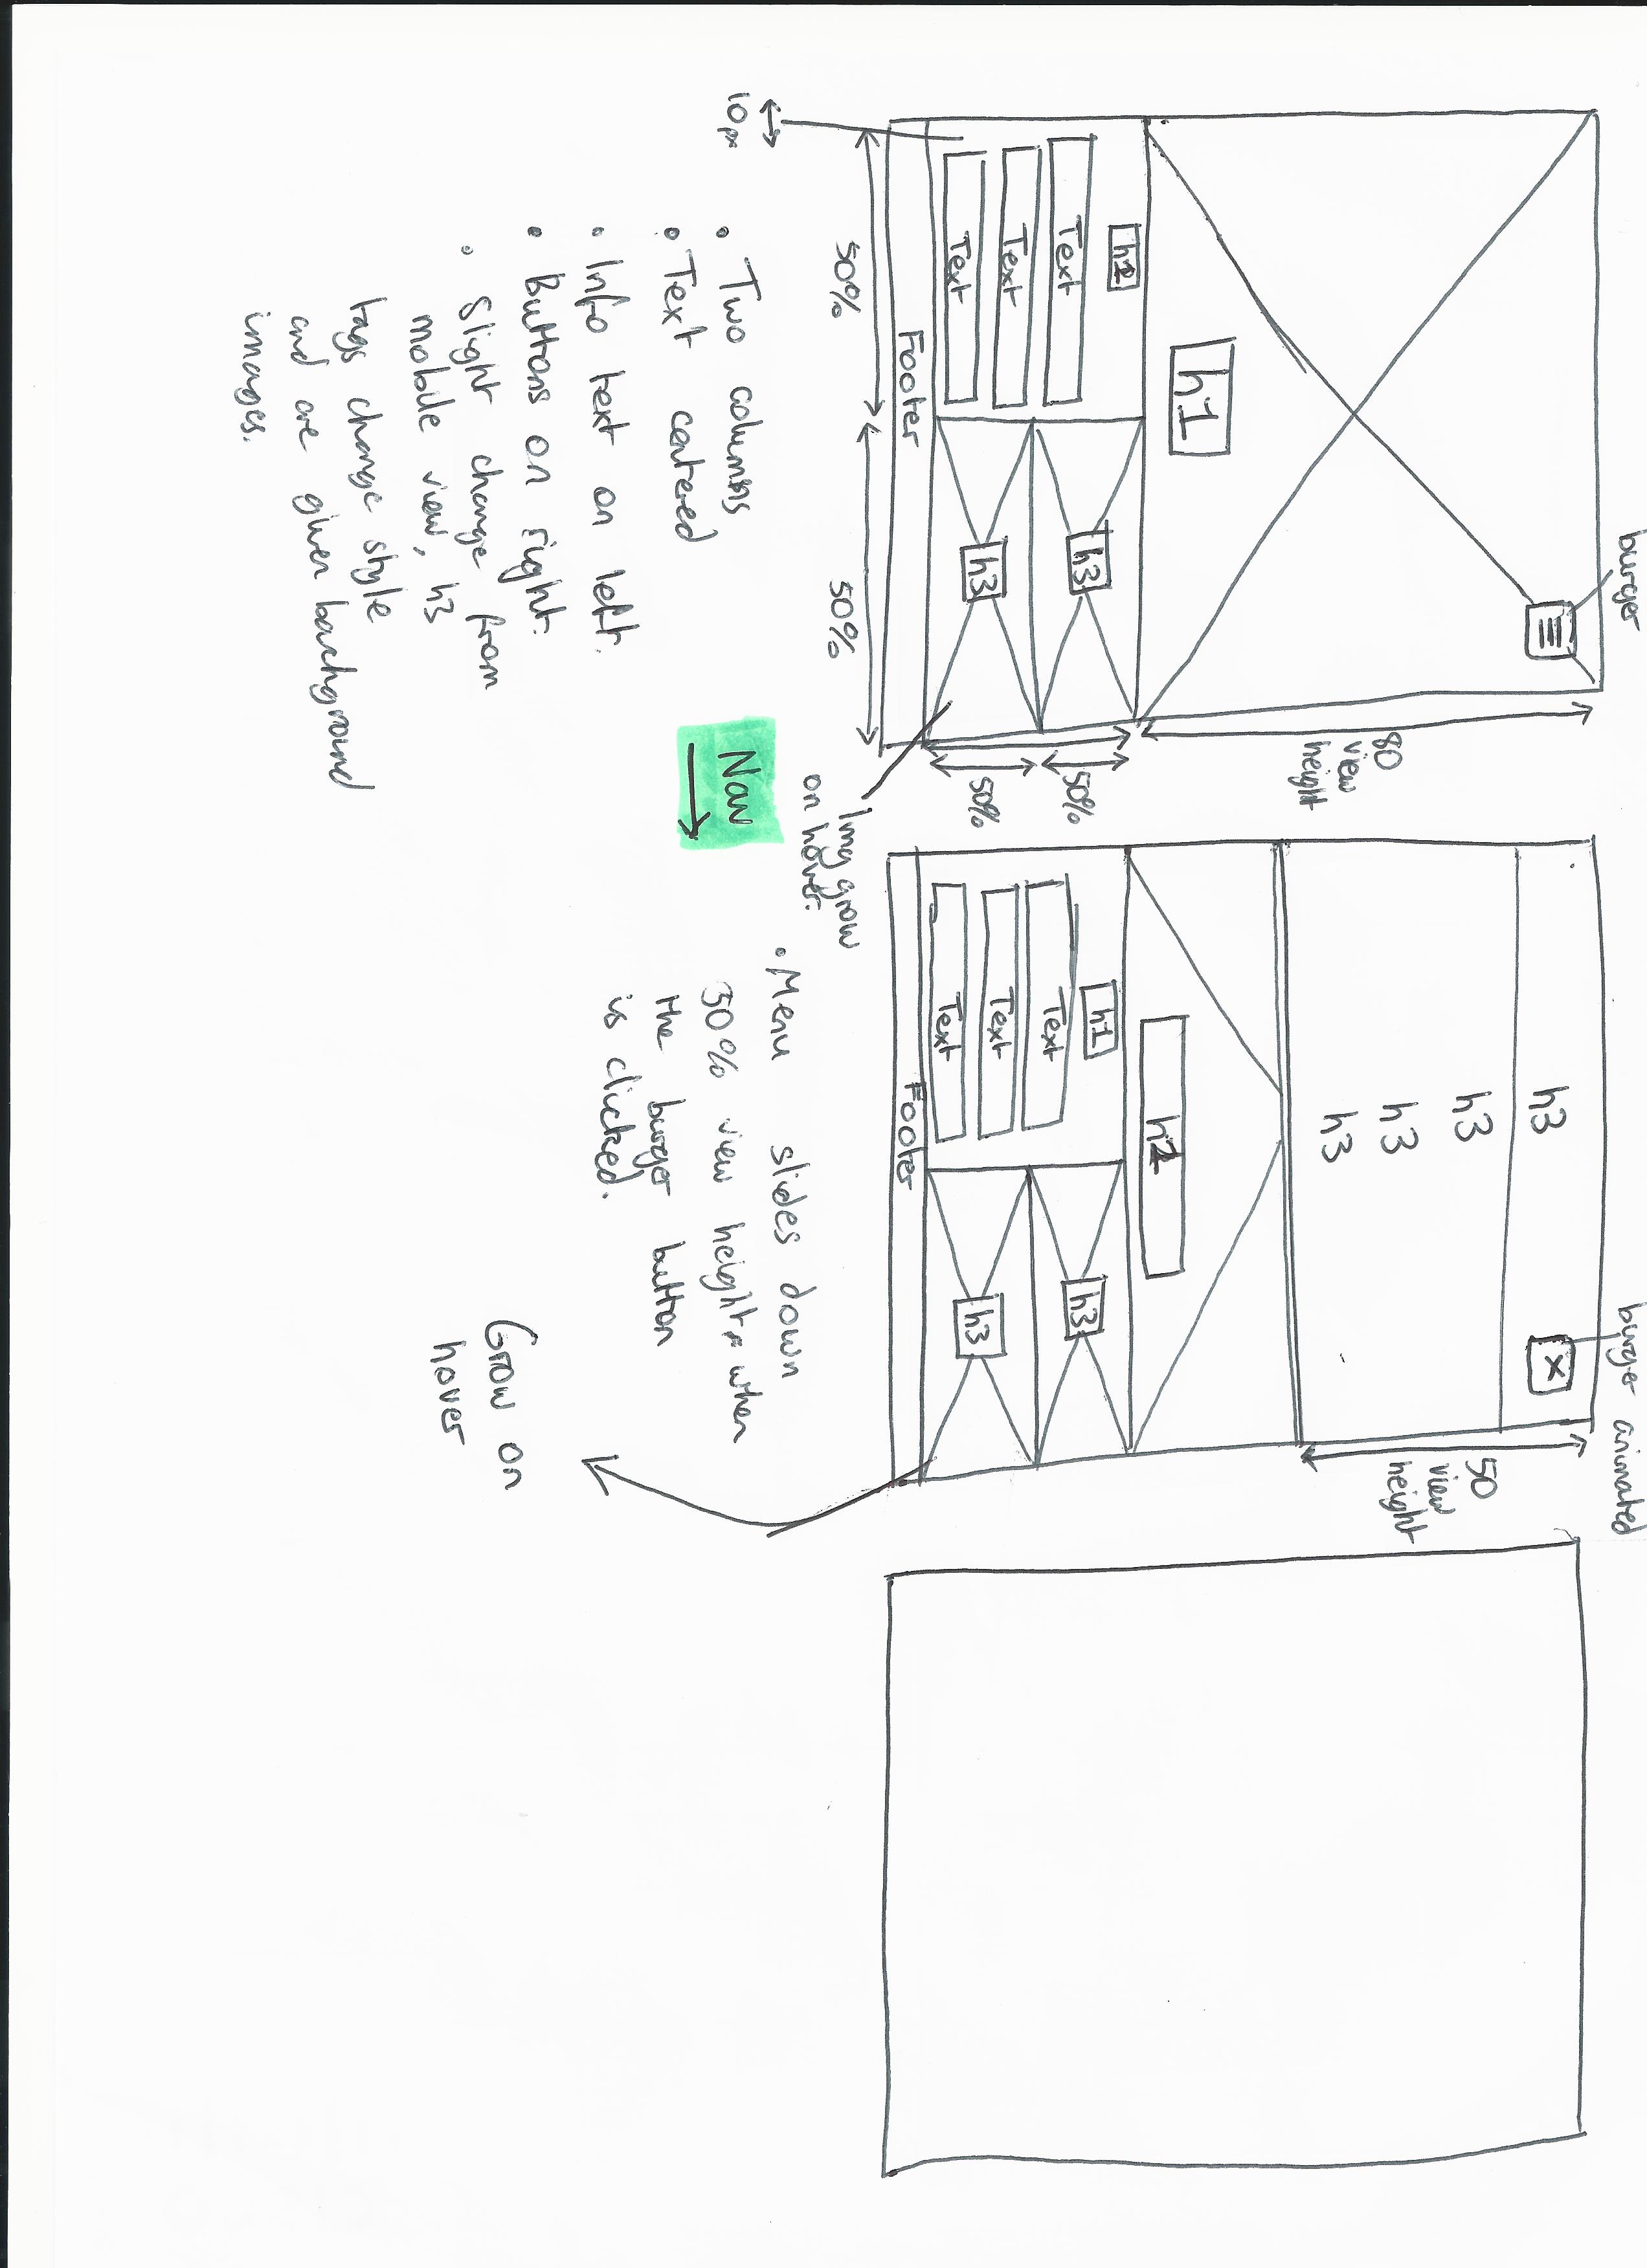 burger
80
view
height
h1
h2
Text
Text
Text
h3
h3
50%
50%
Footer
50%
50%
10px
Img grow
on hover.
• Two columns
• Text centered
• Info text on left.
• Buttons on right.
• Slight change from
mobile view, h3
tags change style
and are given background
images.
Nav
burger animated
x
h3
h3
h3
h3
50
view
height
h1
Text
Text
Text
h3
h3
Footer
• Menu slides down
50% view height when
the burger button
is clicked.
Grow on
hover